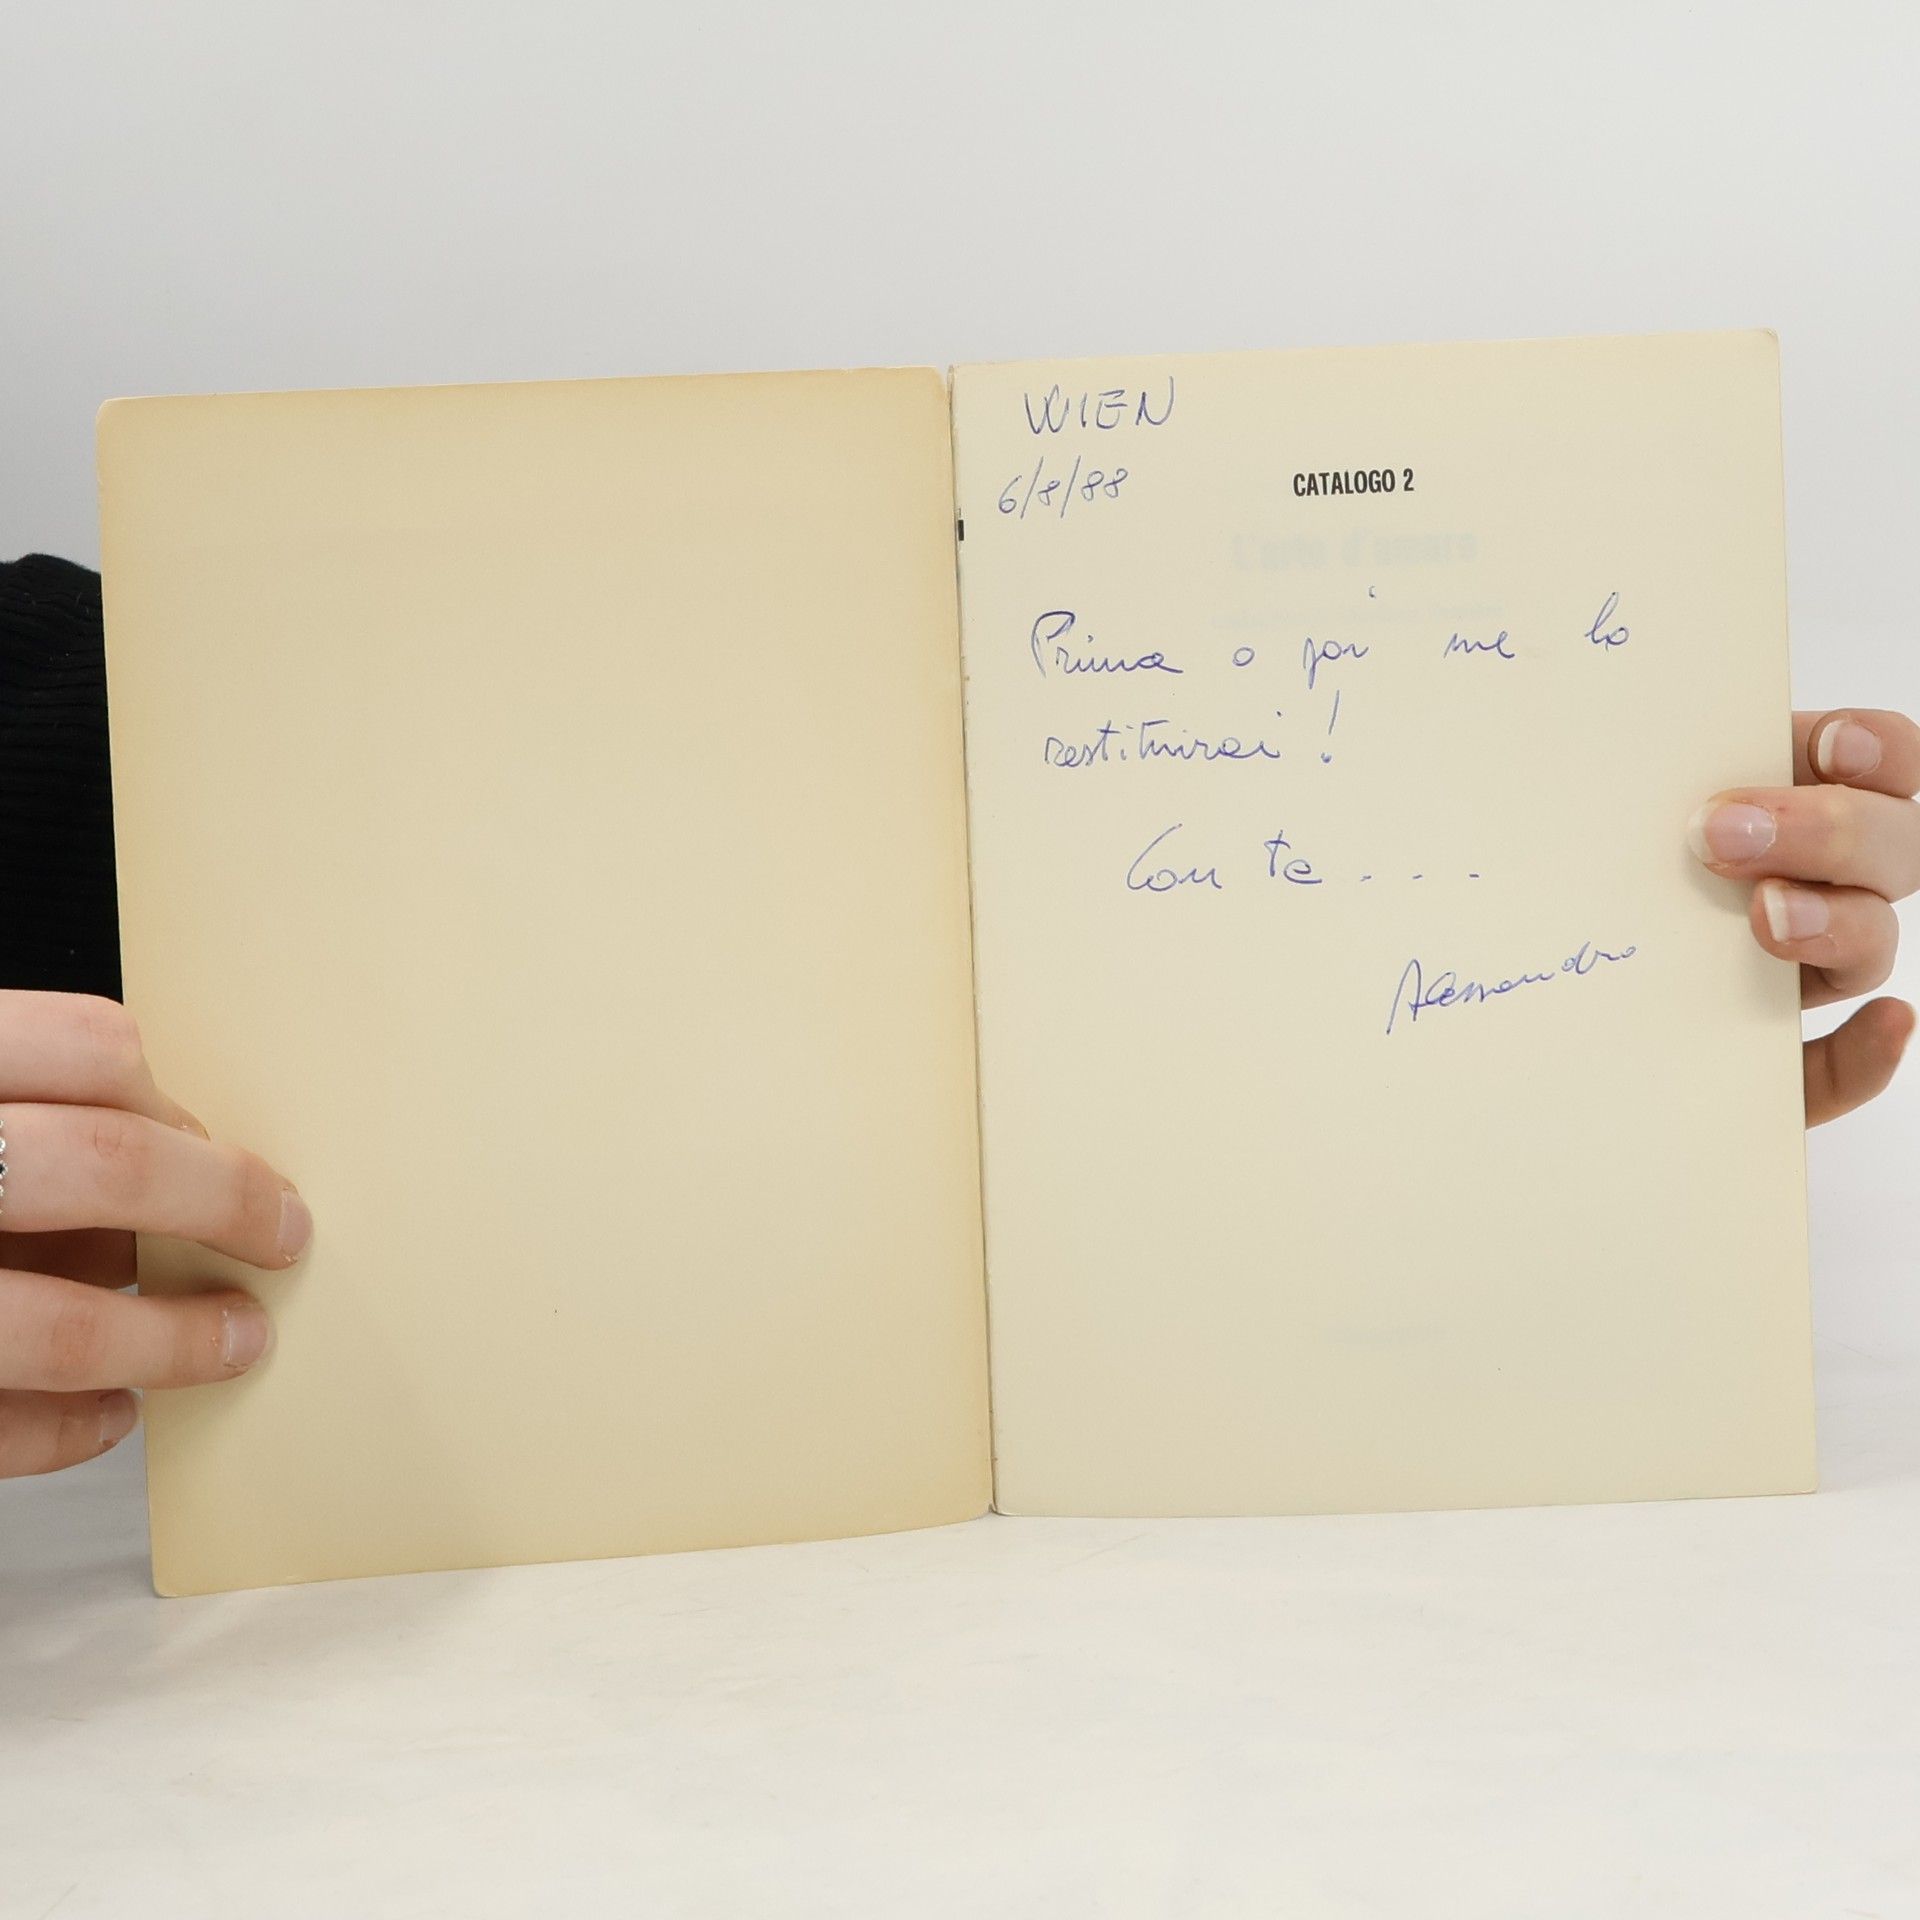 WIEN
6/8/88
CATALOGO 2
L'arte d'amare
Prima o poi me lo
restituirai!
Con te...
Alessandro